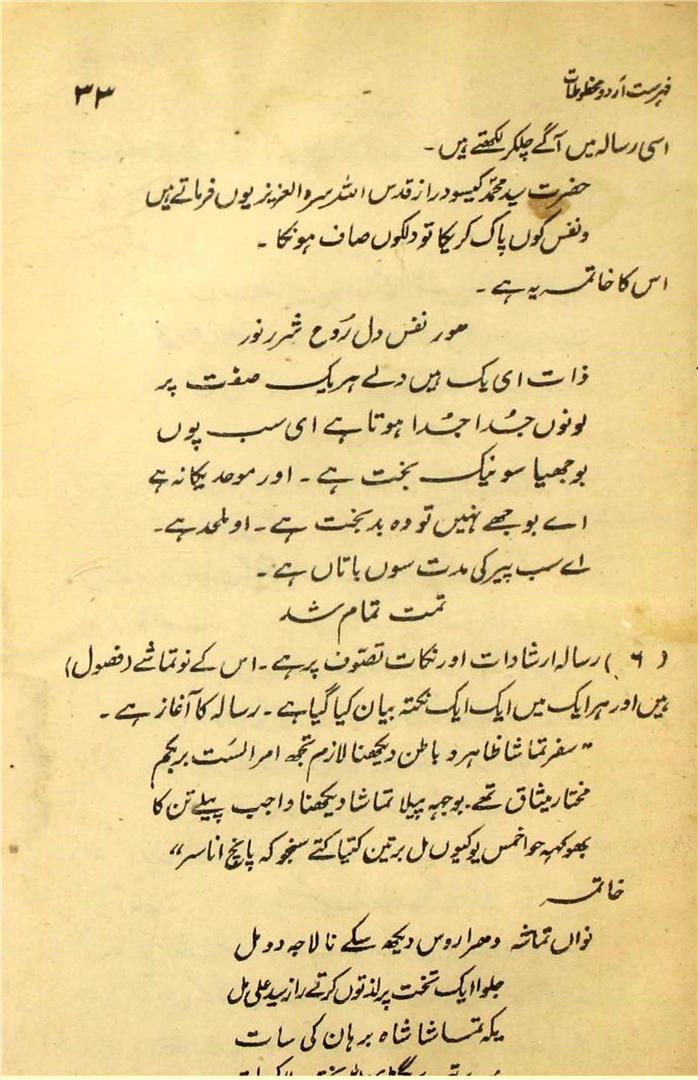 فہرست اُردو مخطوطات
۳۳
اسی رسالہ میں آگے چلکر لکھتے ہیں۔
حضرت سید محمد گیسو دراز قدس اللہ سرہ العزیز یوں فرماتے ہیں
و نفس کوں پاک کریکا تو دلکوں صاف ہونکا ۔
اس کا خاتمہ یہ ہے ۔
ہور نفس دل رُوح سرر نور
ذات ای یک ہیں ولے ہریک صفت پر
لونوں جُدا جُدا ہوتا ہے ای سب یوں
بوجھیا سو نیک بخت ہے ۔ اور موحد یکانہ ہے
اے بوجھے نہیں تو وہ بدبخت ہے ۔ او ملحد ہے۔
اے سب پیر کی مدت سوں باتاں ہے ۔
تمت تمام شد
(۶) رسالہ ارشادات اور نکات تصوّف پر ہے ۔ اس کے نو تماشے (فصول)
ہیں اور ہر ایک میں ایک ایک نکتہ بیان کیا گیا ہے ۔ رسالہ کا آغاز ہے ۔
"سفر تماشا ظاہر و باطن دیکھنا لازم تجھ امر الست بربکم
مختار میثاق تھے ۔ بوجہہ پیلا تماشا دیکھنا واجب پیلے تن کا
بھوکہہ حواخمس یو کیوں مل برتین کتیا کتے سنجو کہ پانچ اناسر"
خاتمہ
نواں تماشہ دھرا روس دیکھ سکے نا لاجہ دو مل
جلوا ایک تخت پر لذتوں کرتے راز سید علی مل
یکہ تماشا شاہ برہان کی سات